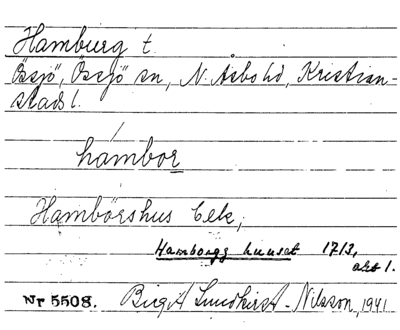 Hamburg t.
Össjö, Össjö sn, N. Åsbo hd, Kristian-
stads l.
hámbor
Hambörshus Cek,
Hamborgs huuset 1713,
akt 1.
Nr 5508. Birgit Lundkvist-Nilsson, 1941